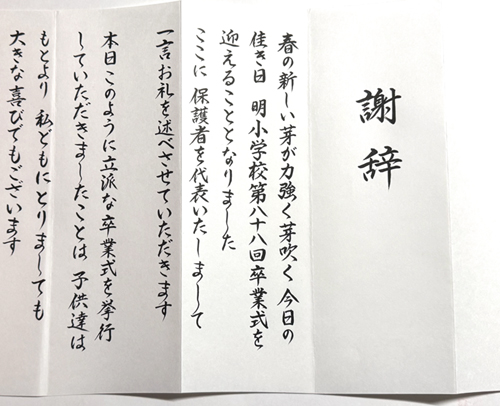 謝辞
春の新しい芽が力強く芽吹く 今日の
佳き日 明小学校第八十八回卒業式を
迎えることとなりました
ここに 保護者を代表いたしまして
一言お礼を述べさせていただきます
本日 このように立派な卒業式を挙行
していただきましたことは 子供達は
もとより 私どもにとりましても
大きな喜びでもございます